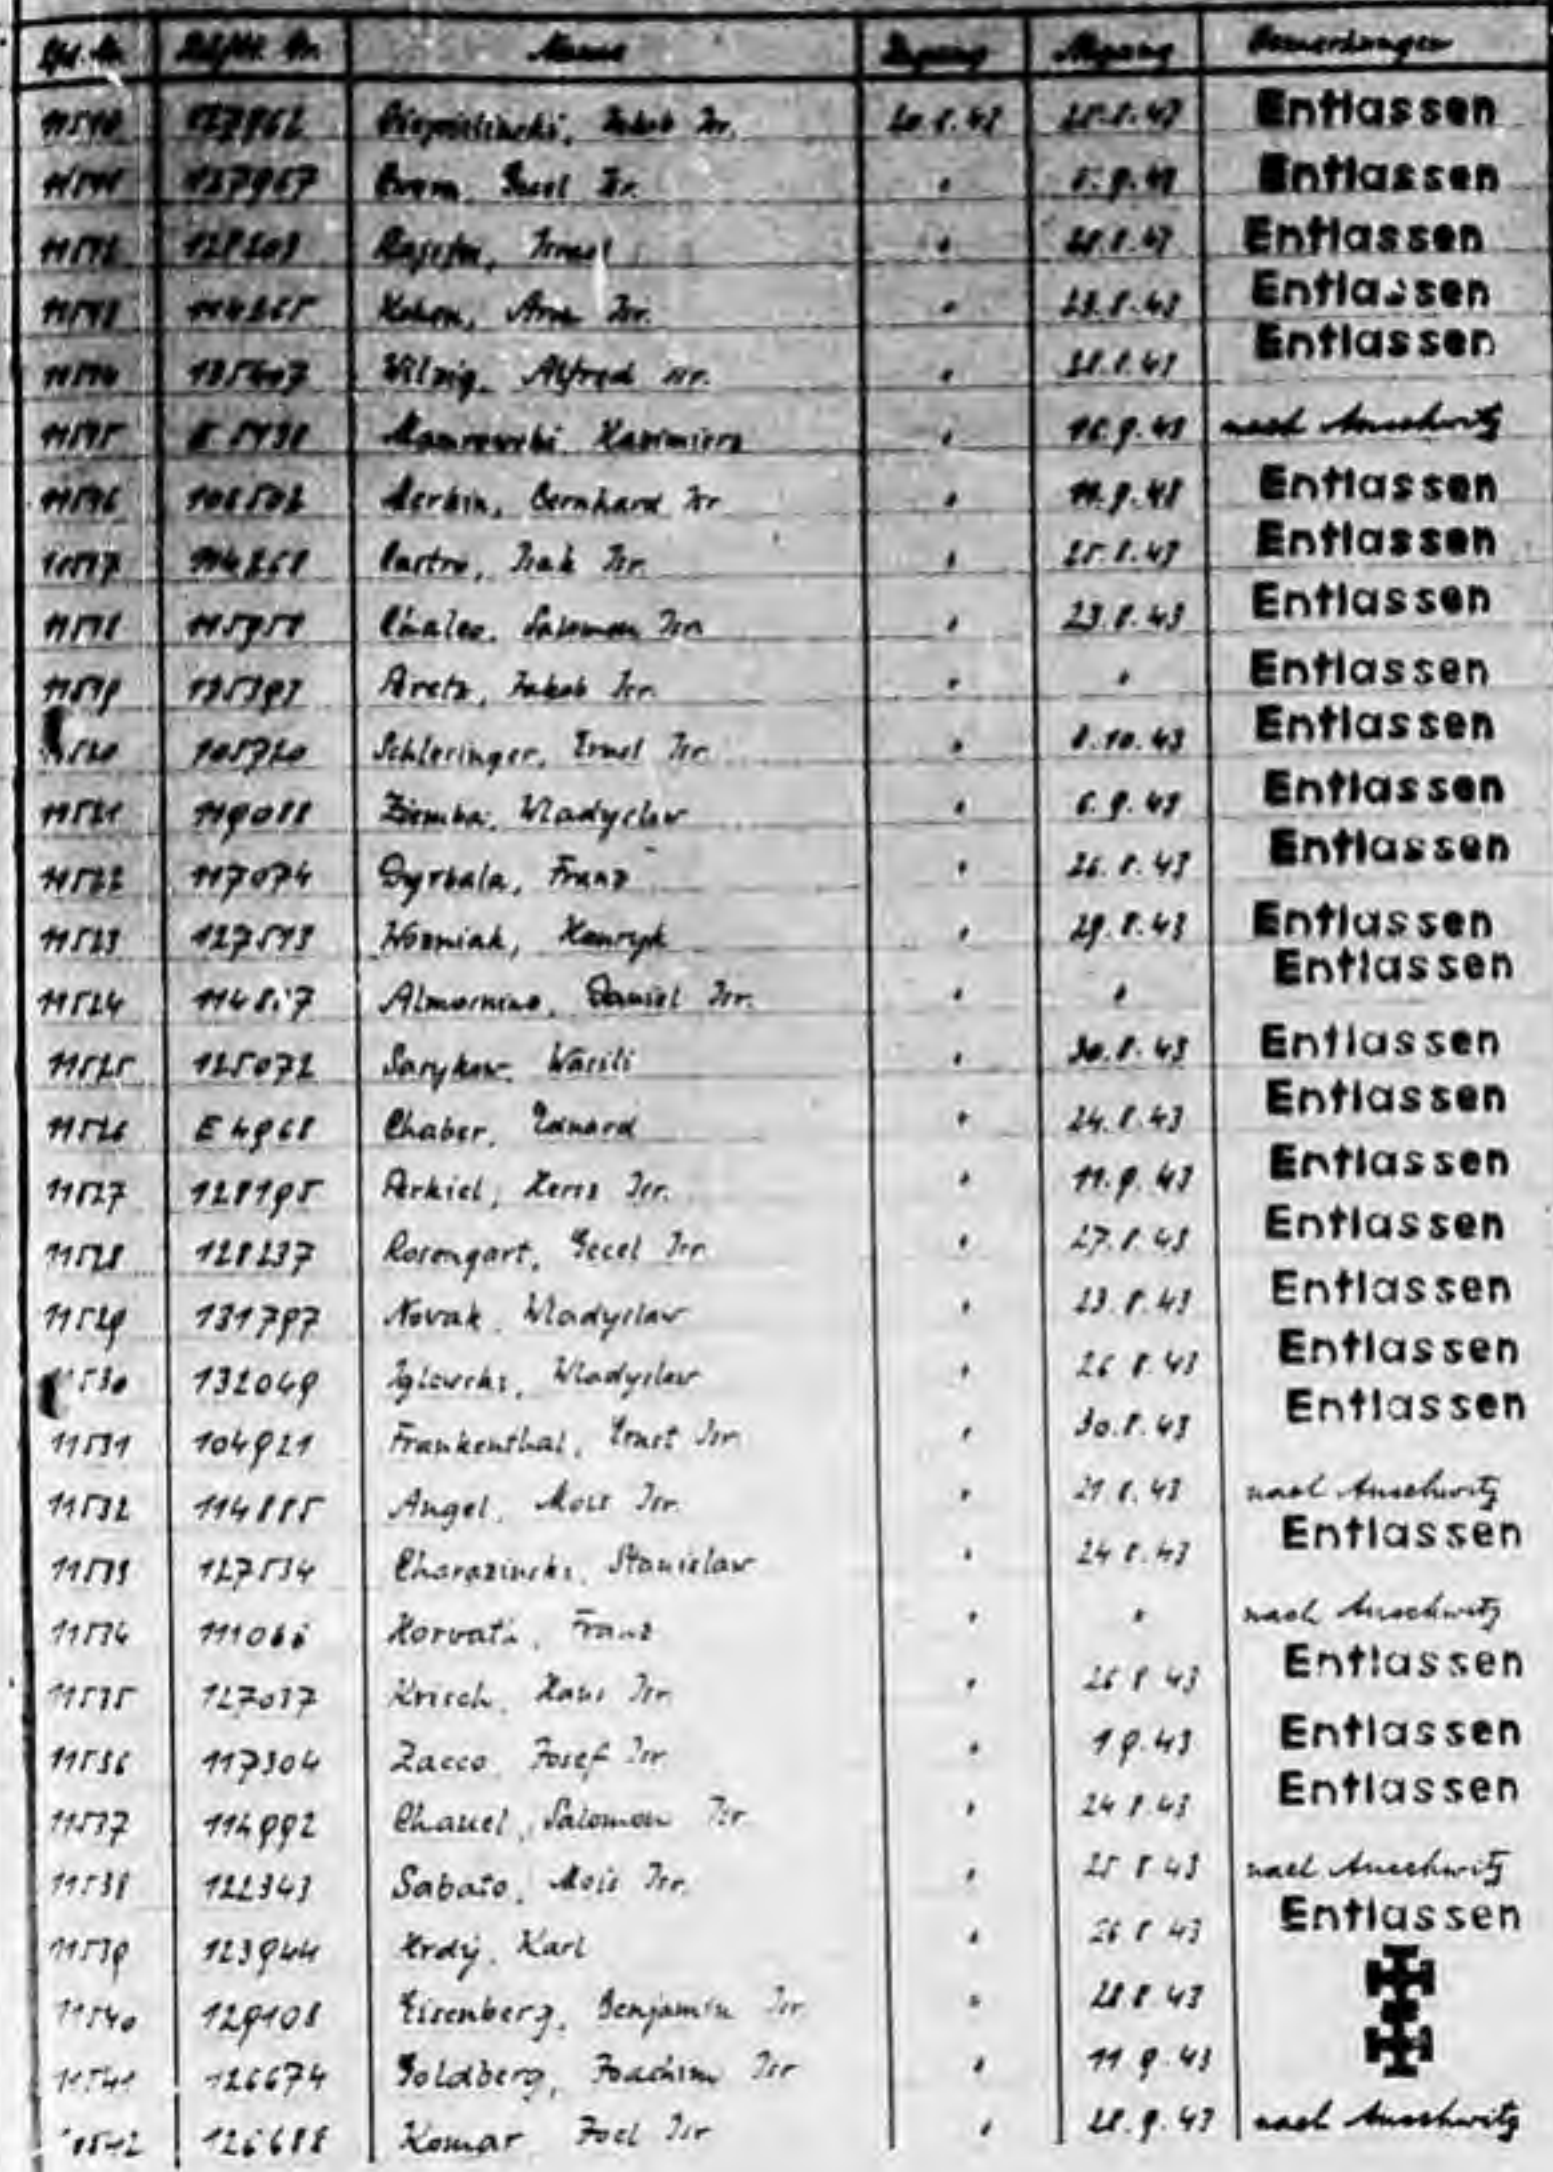 Lfd. Nr. Häftl. Nr. Name Zugang Abgang Bemerkungen
127962 Jakob Isr. 20.8.43 25.8.43 Entlassen
127967 Isr. " Entlassen
128203 Israel " 28.8.43 Entlassen
114265 Kohen, Isr. " 23.8.43 Entlassen
Wilzig, Alfred Isr. " 28.8.43 Entlassen
11515 Kazimierz " nach Auschwitz
11516 106502 Bernhard Isr " 11.9.43 Entlassen
11517 114268 Castro, Isak Isr. " 25.8.43 Entlassen
11518 115951 Salomon Isr. " 23.8.43 Entlassen
11519 135393 Jakob Isr. " " Entlassen
11520 105720 Schlesinger, Ernst Isr. " 8.10.43 Entlassen
11521 119088 Ziemba, Wladyslaw " 6.9.43 Entlassen
11522 117074 Franz " 26.8.43 Entlassen
11523 127513 Wozniak, Henryk " 29.8.43 Entlassen
11524 Almosnino, Daniel Isr. " " Entlassen
11525 125072 Sarykow, Wasili " 30.8.43 Entlassen
11526 E 4968 Chaber, Eduard " 24.8.43 Entlassen
11527 128195 Herss Isr. " 11.9.43 Entlassen
11528 128237 Rosengart, Gecel Isr. " 27.8.43 Entlassen
11529 131797 Novak, Wladyslaw " 23.8.43 Entlassen
11530 132049 Iglewski, Wladyslaw " 26.8.43 Entlassen
11531 104921 Frankenthal, Ernst Isr. " 30.8.43 Entlassen
11532 114885 Angel, Mois Isr. " 21.8.43 nach Auschwitz
11533 127534 Charazinski, Stanislaw " 24.8.43 Entlassen
11534 Horvath, Franz " " nach Auschwitz
11535 127037 Krisch, Hans Isr. " 26.8.43 Entlassen
11536 117304 Zacco, Josef Isr " 1.9.43 Entlassen
11537 114992 Salomon Isr " 24.8.43 Entlassen
11538 122343 Sabato, Mois Isr. " 25.8.43 nach Auschwitz
11539 123944 Hrdy, Karl " 26.8.43 Entlassen
11540 129108 Eisenberg, Benjamin Isr " 28.8.43
11541 126674 Goldberg, Joachim Isr " 11.9.43
11542 126688 Komar Joel Isr " 28.9.43 nach Auschwitz